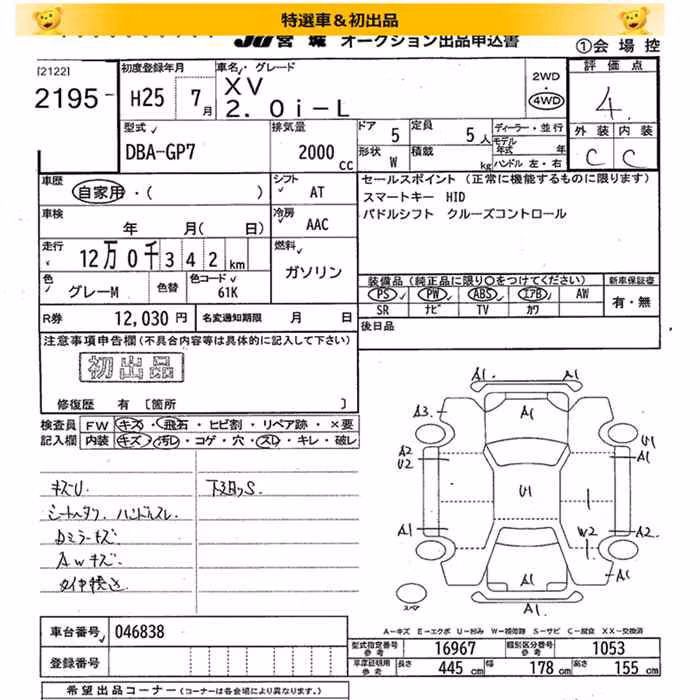 特選車＆初出品
JU宮城 オークション出品申込書
①会場控
[2122]
2195-
初度登録年月
H25 7月
車名・グレード
XV
2.0i-L
2WD
・
4WD
評価点
4
外装 内装
C C
型式
DBA-GP7
排気量
2000cc
ドア 5
定員 5人
形状 W
積載 kg
ディーラー・並行
モデル年式 年式
ハンドル 左・右
車歴
自家用・( )
シフト AT
車検 年 月( 日)
冷房 AAC
走行
12万0千342km
燃料
ガソリン
色 グレーM
色替
色コード
61K
R券 12,030円
名変通知期限 月 日
セールスポイント (正常に機能するものに限ります)
スマートキー HID
パドルシフト クルーズコントロール
装備品(純正品に限り○をつけてください)
新車保証書
PS PW ABS エアB AW
有・無
SR ナビ TV カワ
後日品
注意事項申告欄(不具合内容等は具体的に記入して下さい)
初出品
修復歴 有 [箇所 ]
検査員記入欄
FW キズ・飛石・ヒビ割・リペア跡・×要
内装 キズ・汚レ・コゲ・穴・スレ・キレ・破レ
キズU
シートヘタリ ハンドルスレ
Dミラーキズ
AWキズ
下廻りS
A1 A1
A3 A1
A2
U2
U1
A1
U1
A1
W2
A2
A1
A1
A1
スペア
A-キズ E-エクボ U-凹み W-補修跡 S-サビ C-腐食 XX-交換済
車台番号 046838
登録番号
型式指定番号 参考 16967
類別区分番号 参考 1053
車庫証明用 参考
長さ 445cm 幅 178cm 高さ 155cm
希望出品コーナー (コーナーは各会場により異なります。)